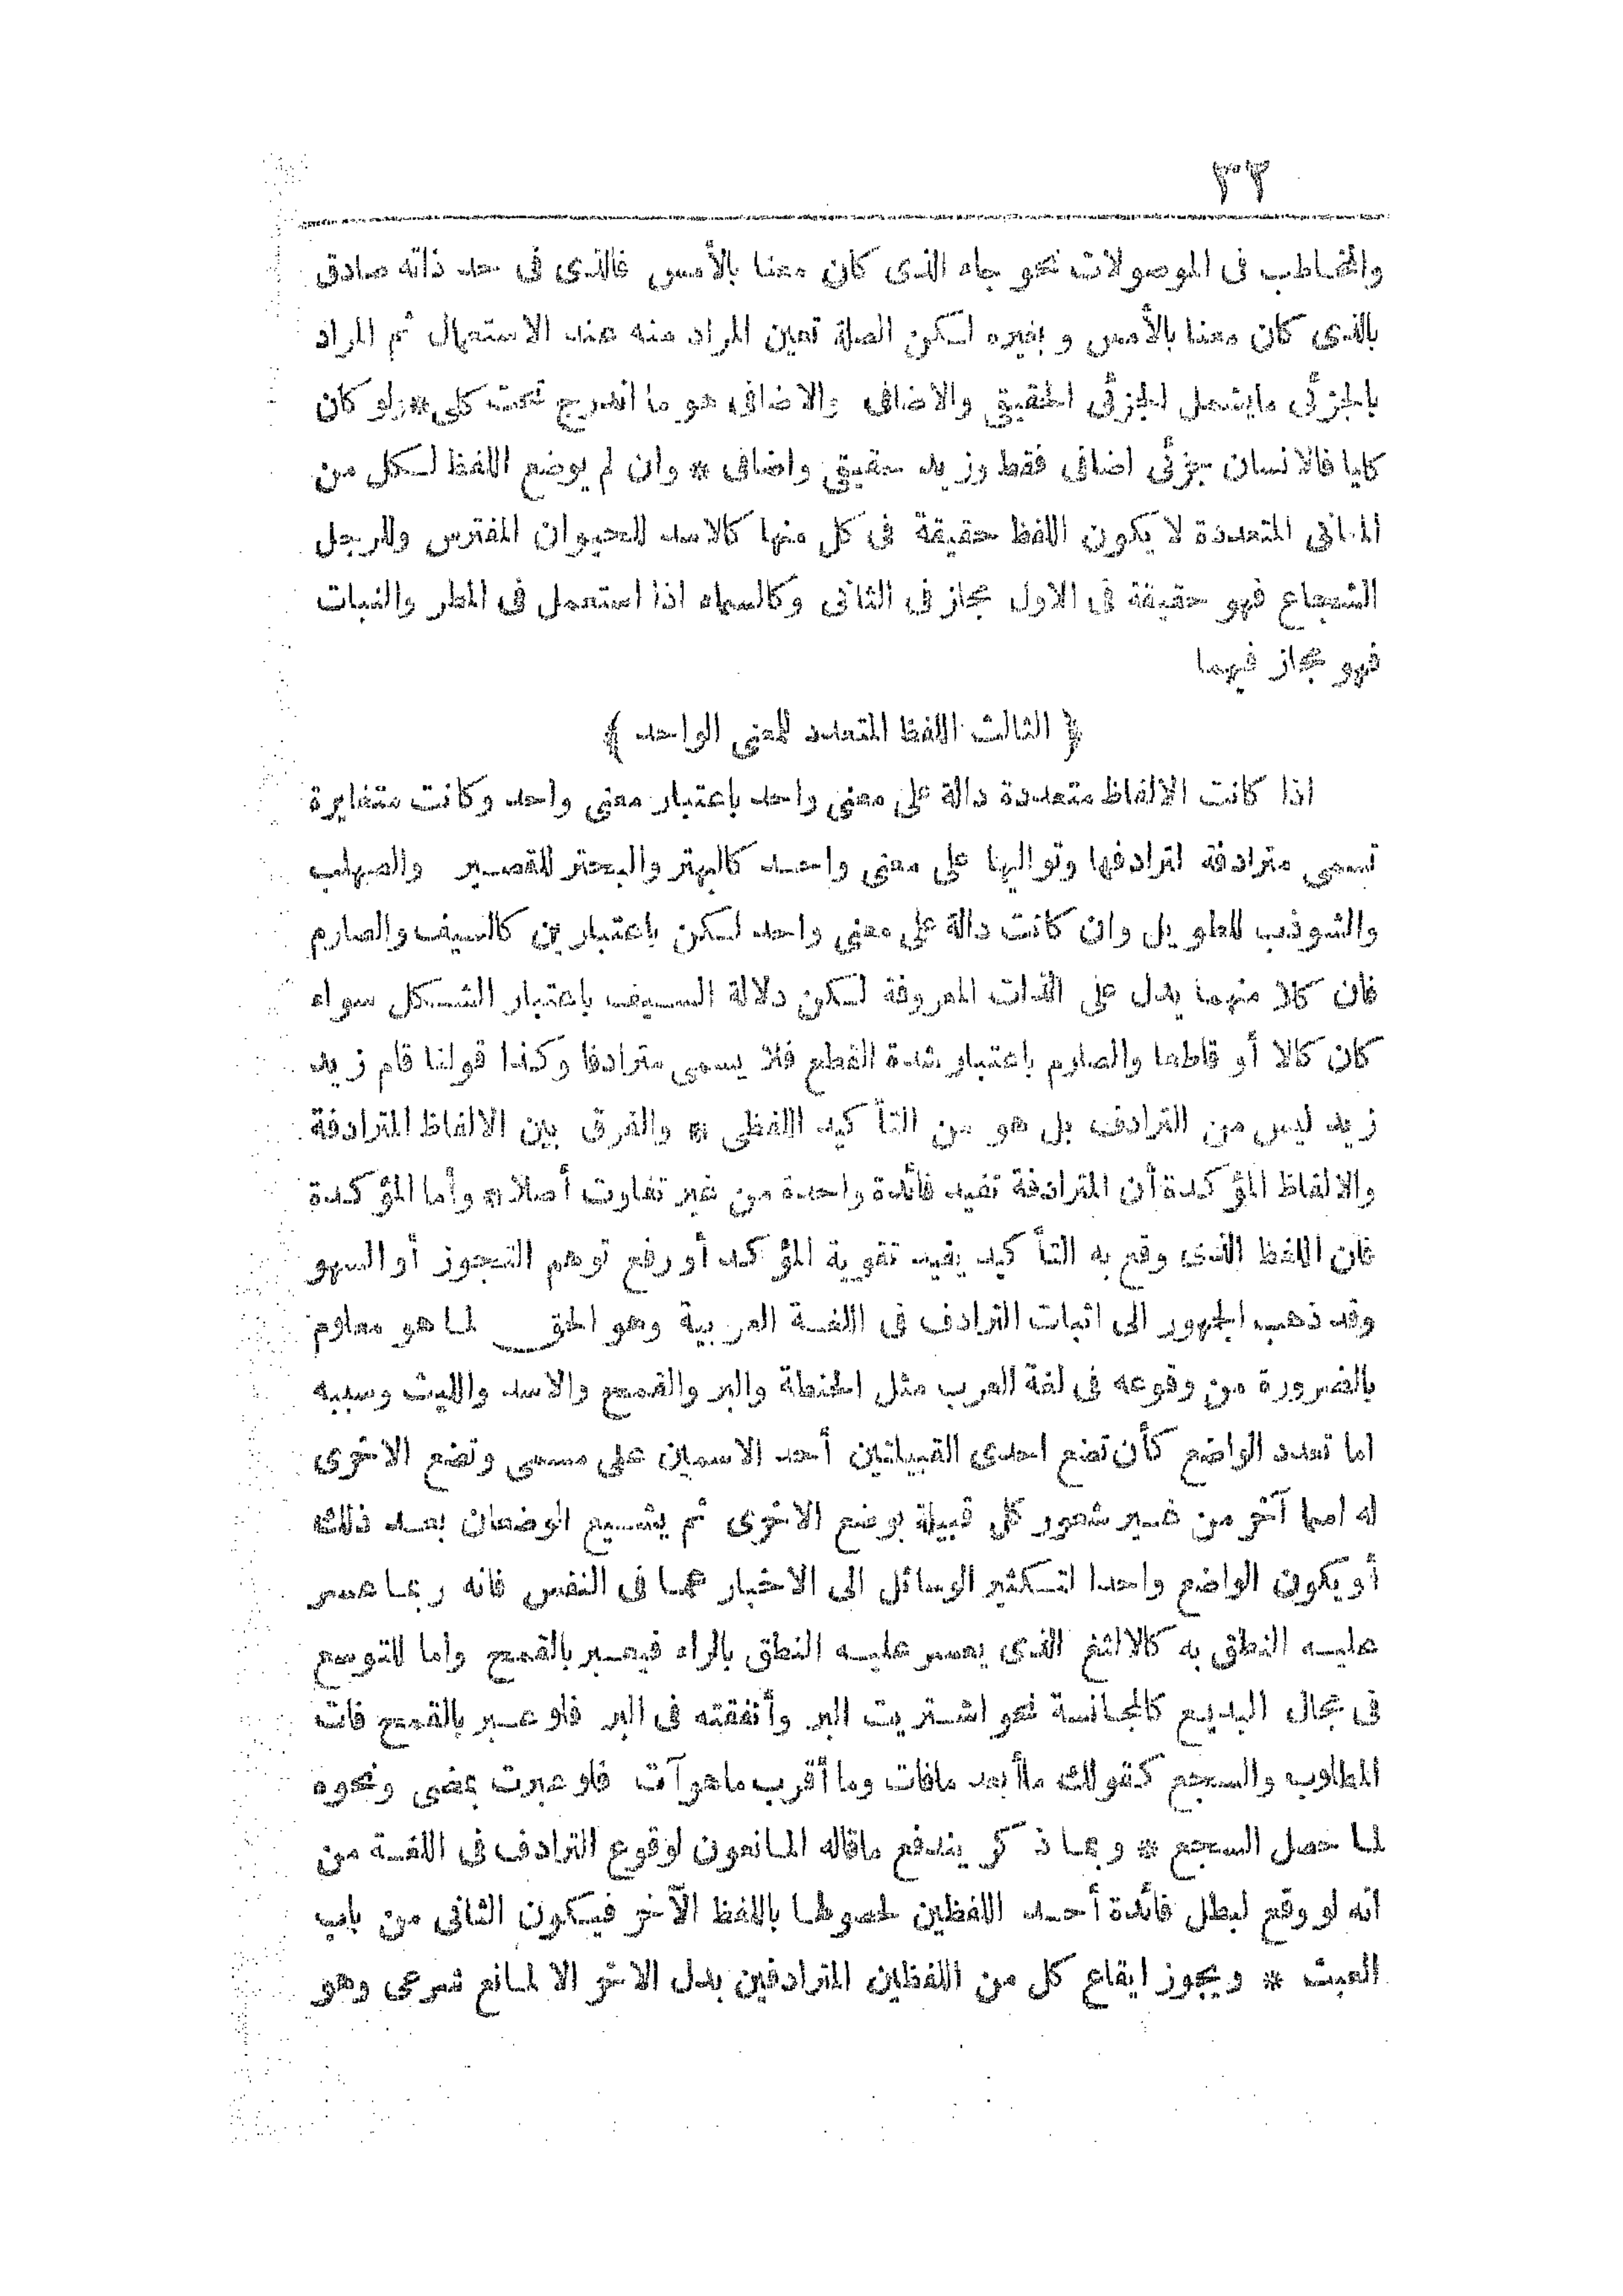 ٣٣
والمخاطب فى الموصولات نحو جاء الذى كان معنا بالأمس فالذى فى حد ذاته صادق
بالذى كان معنا بالأمس و بغيره لكن الصلة تعين المراد منه عند الاستعمال ثم المراد
بالجزئى مايشمل الجزئى الحقيقى والاضافى والاضافى هو ما اندرج تحت كلى * ولو كان
كليا فالانسان جزئى اضافى فقط وزيد حقيقى واضافى * وان لم يوضع اللفظ لكل من
المعانى المتعددة لا يكون اللفظ حقيقة فى كل منها كالاسد للحيوان المفترس وللرجل
الشجاع فهو حقيقة فى الاول مجاز فى الثانى وكالسماء اذا استعمل فى المطر والنبات
فهو مجاز فيهما
﴿ الثالث اللفظ المتعدد للمعنى الواحد ﴾
اذا كانت الالفاظ متعددة دالة على معنى واحد باعتبار معنى واحد وكانت متغايرة
تسمى مترادفة لترادفها وتواليها على معنى واحد كالبهتر والبحتر للقصير والصهلب
والشوذب للطويل وان كانت دالة على معنى واحد لكن باعتبارين كالسيف والصارم
فان كلا منهما يدل على الذات المعروفة لكن دلالة السيف باعتبار الشكل سواء
كان كالا أو قاطعا والصارم باعتبار شدة القطع فلا يسمى مترادفا وكذا قولنا قام زيد
زيد ليس من الترادف بل هو من التأكيد اللفظى * والفرق بين الالفاظ المترادفة
والالفاظ المؤكدة أن المترادفة تفيد فائدة واحدة من غير تفاوت أصلا * وأما المؤكدة
فان اللفظ الذى وقع به التأكيد يفيد تقوية المؤكد أو رفع توهم التجوز أو السهو
وقد ذهب الجمهور الى اثبات الترادف فى اللغة العربية وهو الحق لما هو معلوم
بالضرورة من وقوعه فى لغة العرب مثل الحنطة والبر والقمح والاسد والليث وسببه
اما تعدد الواضع كأن تضع احدى القبيلتين أحد الاسمين على مسمى وتضع الاخرى
له اسما آخر من غير شعور كل قبيلة بوضع الاخرى ثم يشيع الوضعان بعد ذلك
أو يكون الواضع واحدا لتكثير الوسائل الى الاخبار عما فى النفس فانه ربما عسر
عليه النطق به كالالثغ الذى يعسر عليه النطق بالراء فيعبر بالقمح واما للتوسع
فى مجال البديع كالمجانسة نحو اشتريت البر وأنفقته فى البر فلو عبر بالقمح فات
المطلوب والسجع كقولك ما أبعد مافات وما أقرب ماهو آت فلو عبرت بمضى ونحوه
لما حصل السجع * و بما ذكر يندفع ماقاله المانعون لوقوع الترادف فى اللغة من
انه لو وقع لبطل فائدة أحد اللفظين لحصولها باللفظ الآخر فيكون الثانى من باب
العبث * ويجوز ايقاع كل من اللفظين المترادفين بدل الاخر الا لمانع شرعى وهو